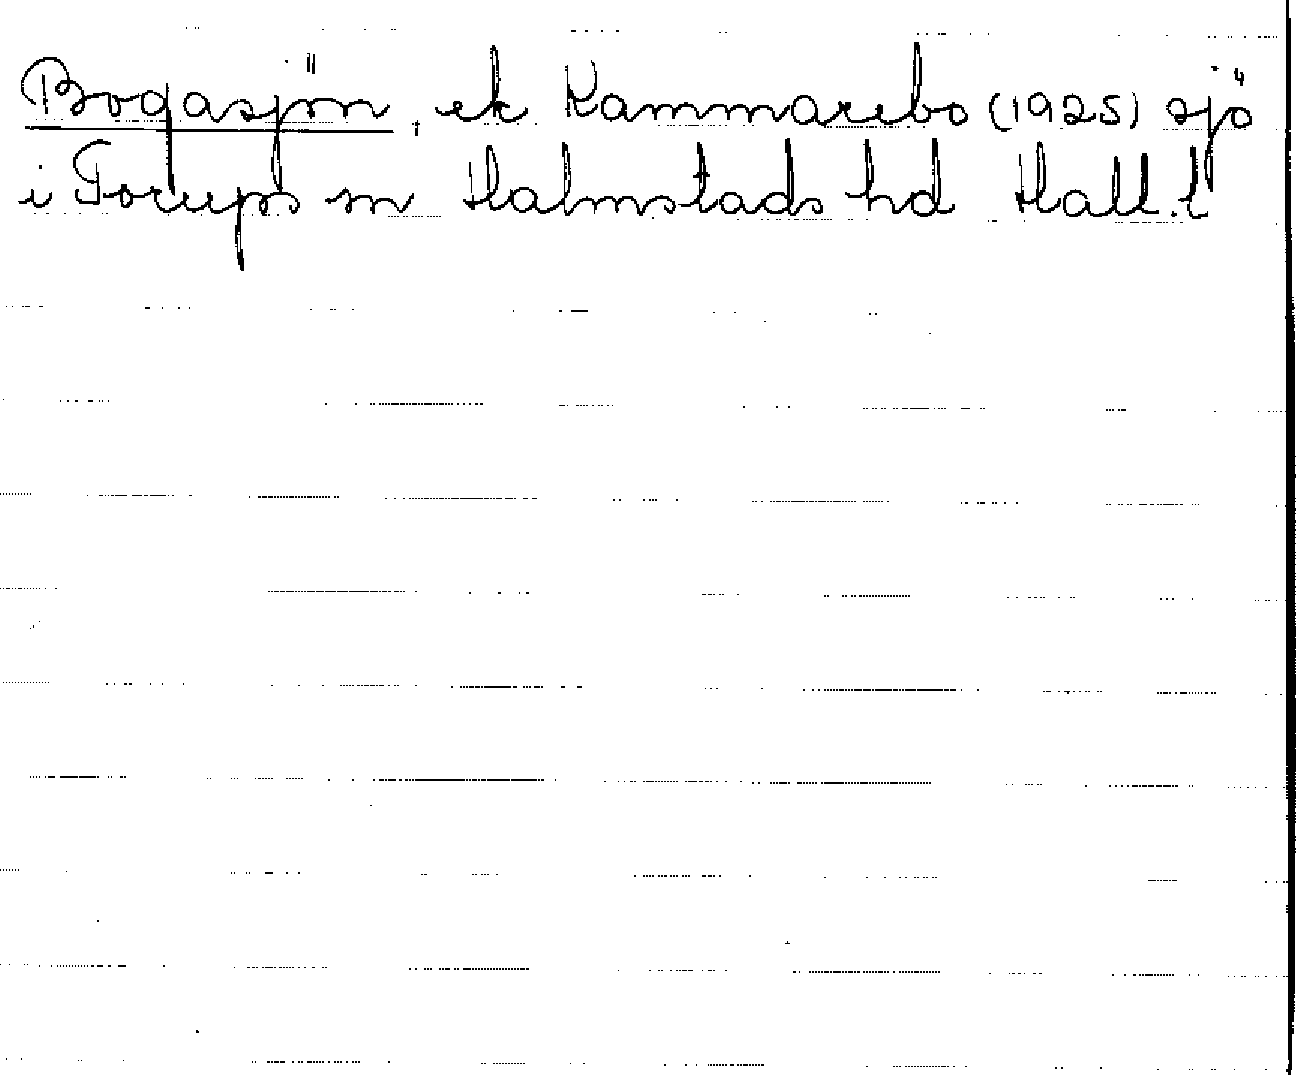 Bogasjön, ek Kammarebo (1925) sjö
i Torups sn Halmstads hd Hall. l